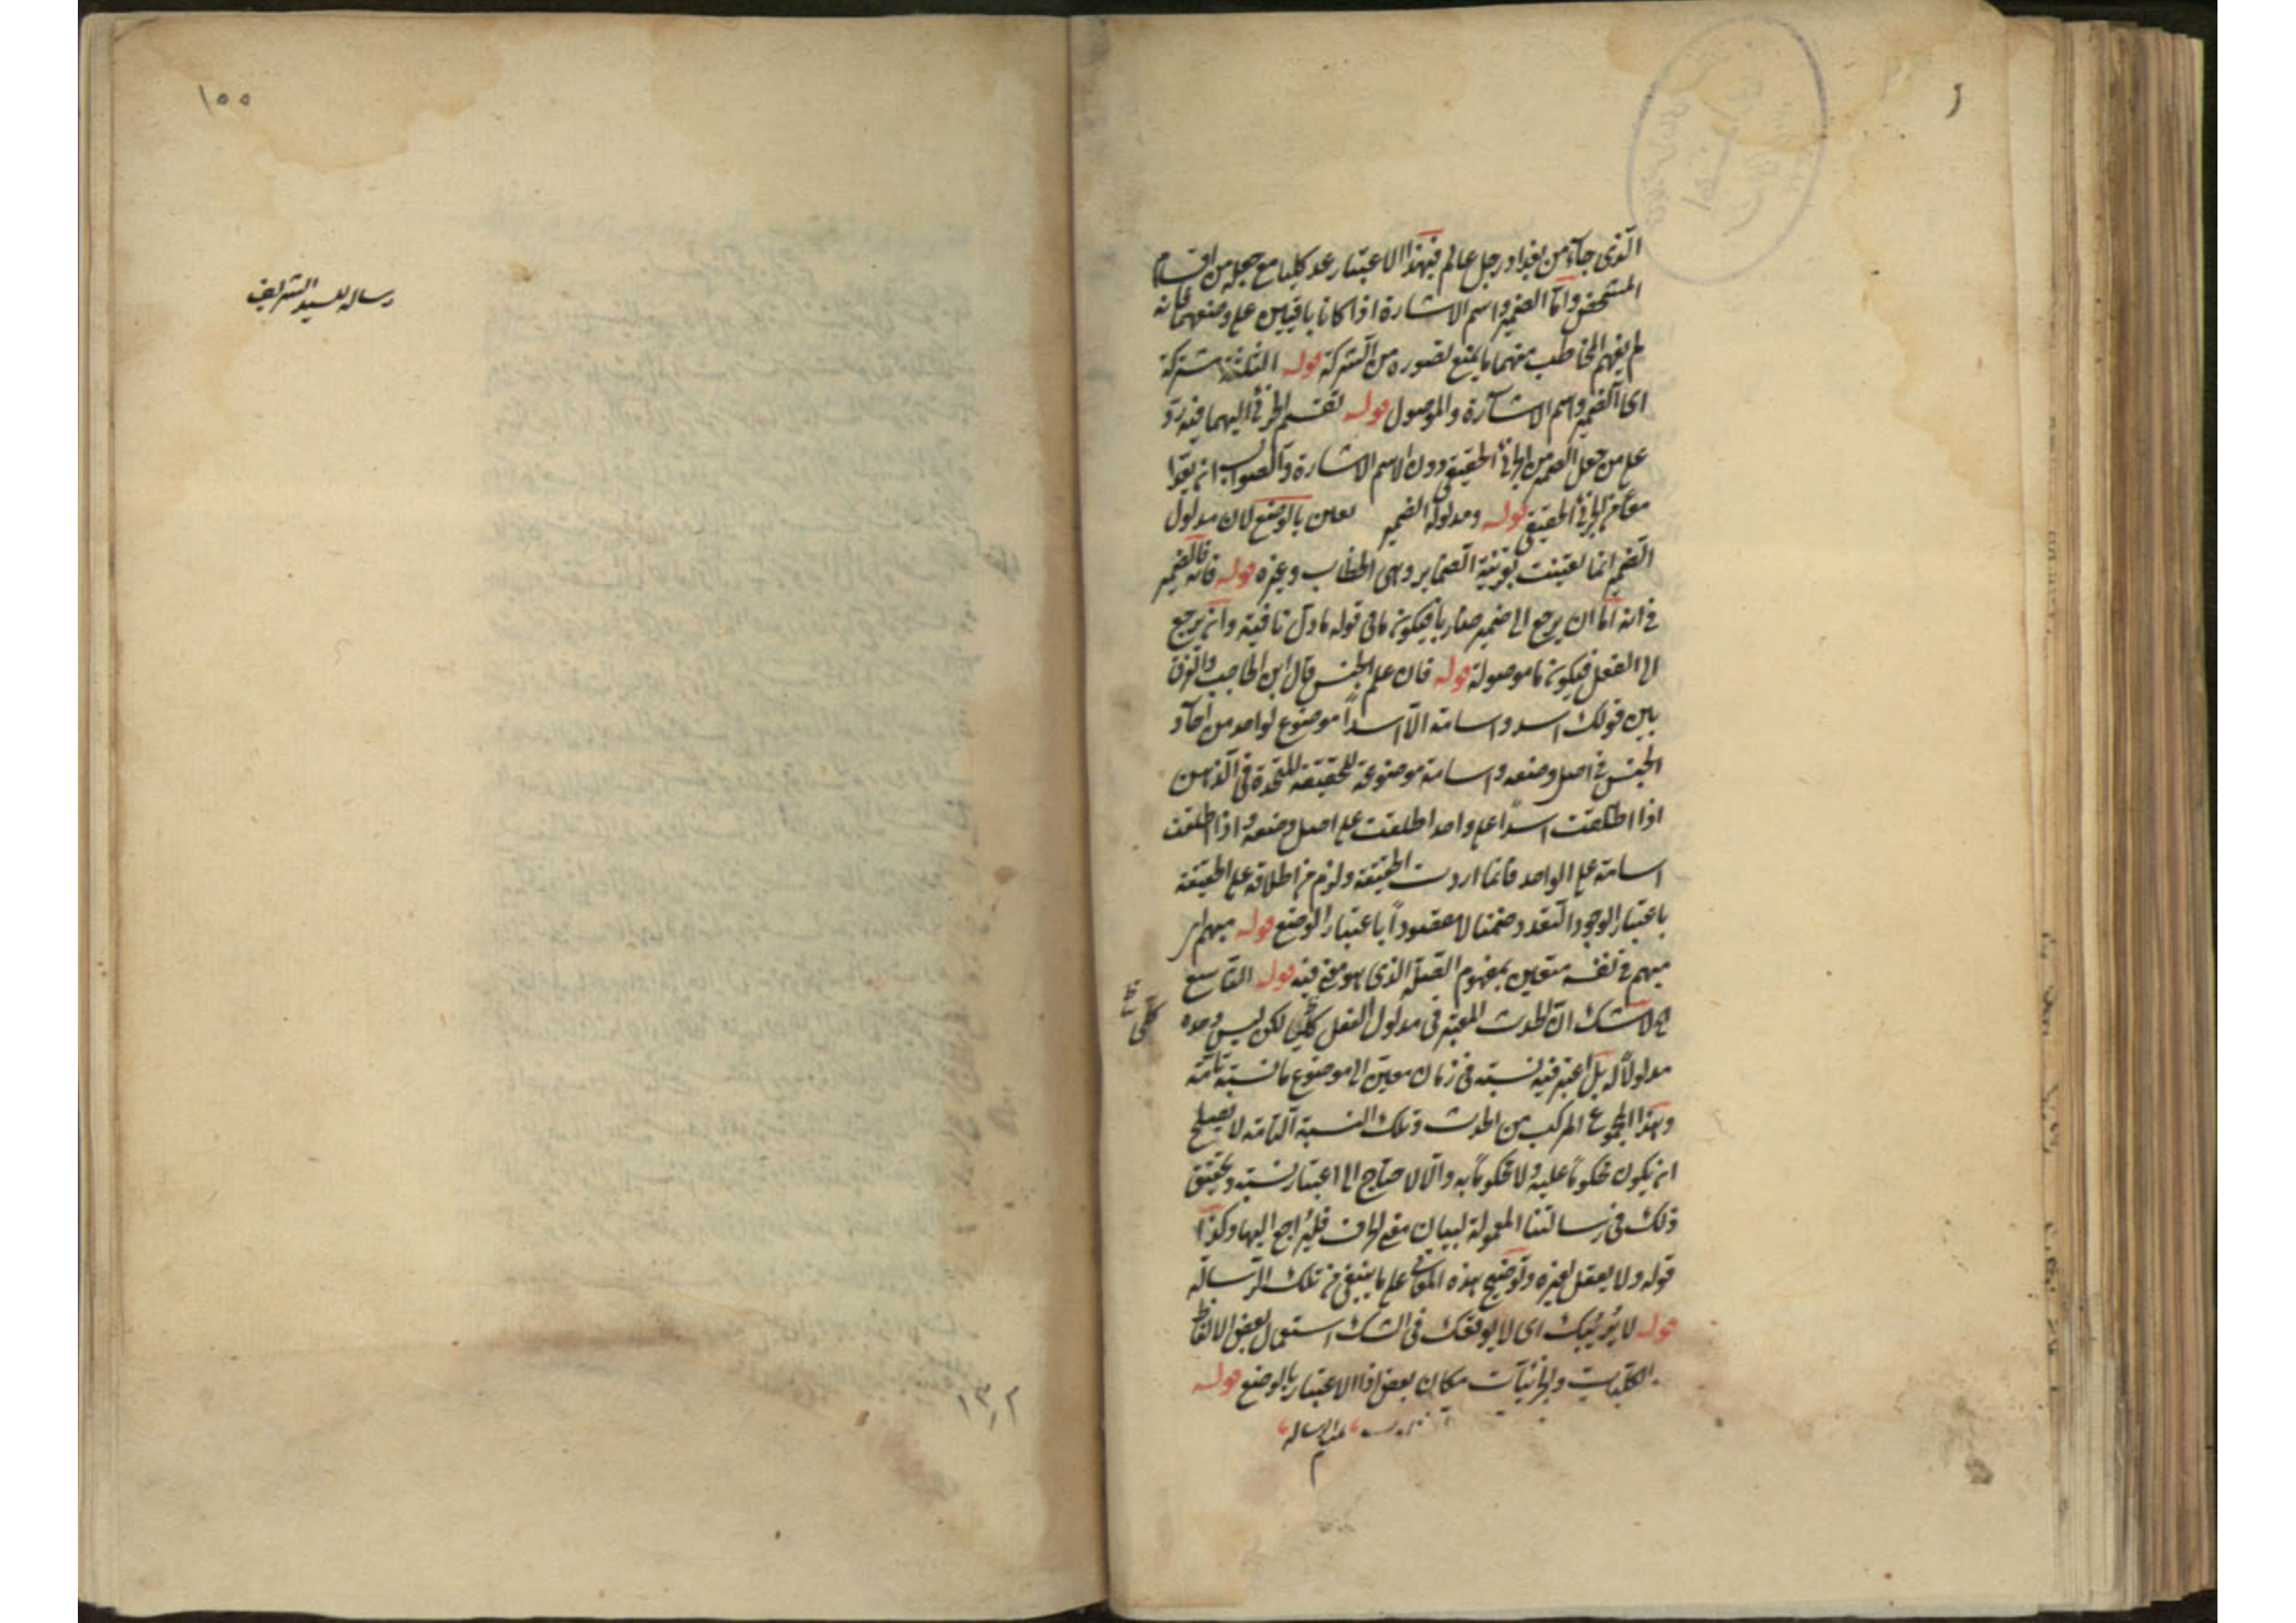 الذى جاء من بغداد رجل عالم فبهذا الاعتبار عد كليا مع جعله من اقسام
المشخص واما الضمير واسم الاشارة اذا كانا باقيين على وضعهما فانه
لم يفهم المخاطب منهما ما يمنع تصوره من الشركة قوله الثلثة مشتركة
اى الضمير واسم الاشارة والموصول قوله تقسم الجزئى اليهما فيه رد
على من جعل الضمير من الجزئى الحقيقى دون الاسم الاشارة والصواب ان يعدا
معا من الجزئى الحقيقى قوله ومدلول الضمير تعين بالوضع لان مدلول
الضمير انما تعينت بقرينة الضماير وهى الخطاب وغيره قوله فانه لضمير
فى انه اما ان يرجع الى ضمير ضاربا فيكون ما فى قوله ما دل نافية وان يرجع
الى الفعل فيكون ما موصولة قوله فان علم الجنس قال ابن الحاجب والفرق
بين قولك اسد واسامة الا اسدا موضوع لواحد من احاد
الجنس فى اصل وضعه واسامة موضوعة للحقيقة المتحدة فى الذهن
اذا اطلقت اسدا على واحد اطلقت على اصل وضعه واذا اطلقت
اسامة على الواحد فانما اردت الحقيقة ولزم من اطلاقه على الحقيقة
باعتبار الوجود التعدد ضمنا لا مقصودا باعتبار الوضع قوله مبهم اى
مبهم فى نفسه متعين بمفهوم الصلة الذى هو معنى فيه قوله التاسع
لا شك ان الحدث المعتبر فى مدلول الفعل كلى لكن ليس وحده
مدلولا له بل اعتبر فيه نسبته فى زمان معين الى موضوع ما نسبة تامة
وهذا المجموع المركب من الحدث وتلك النسبة التامة لا يصلح
ان يكون محكوما عليه ولا محكوما به والا لاحتاج الى اعتبار نسبة وتحقيق
ذلك فى رسالتنا المعمولة لبيان معنى الحرف فليراجع اليها وكذا
قوله ولا يعقل لغيره وتوضيح هذه المعانى على ما ينبغى من تلك الرسالة
قوله لا يريبك اى لا يوقعك فى الشك استعمال بعض الالفاظ
الكليات والجزئيات مكان بعض اذا الاعتبار بالوضع قوله
تمت الرسالة
م
١٥٥
رساله لسيد الشريف
١٣٫٢